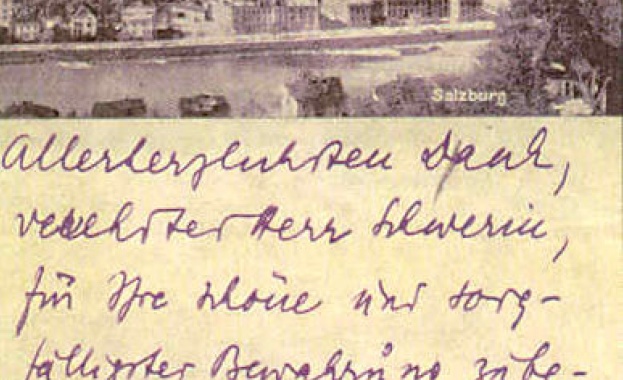 Salzburg
Allerherzlichsten Dank,
verehrter Herr Schwerin,
für Ihre schöne und sorg-
fälligster Bewahrung zube-